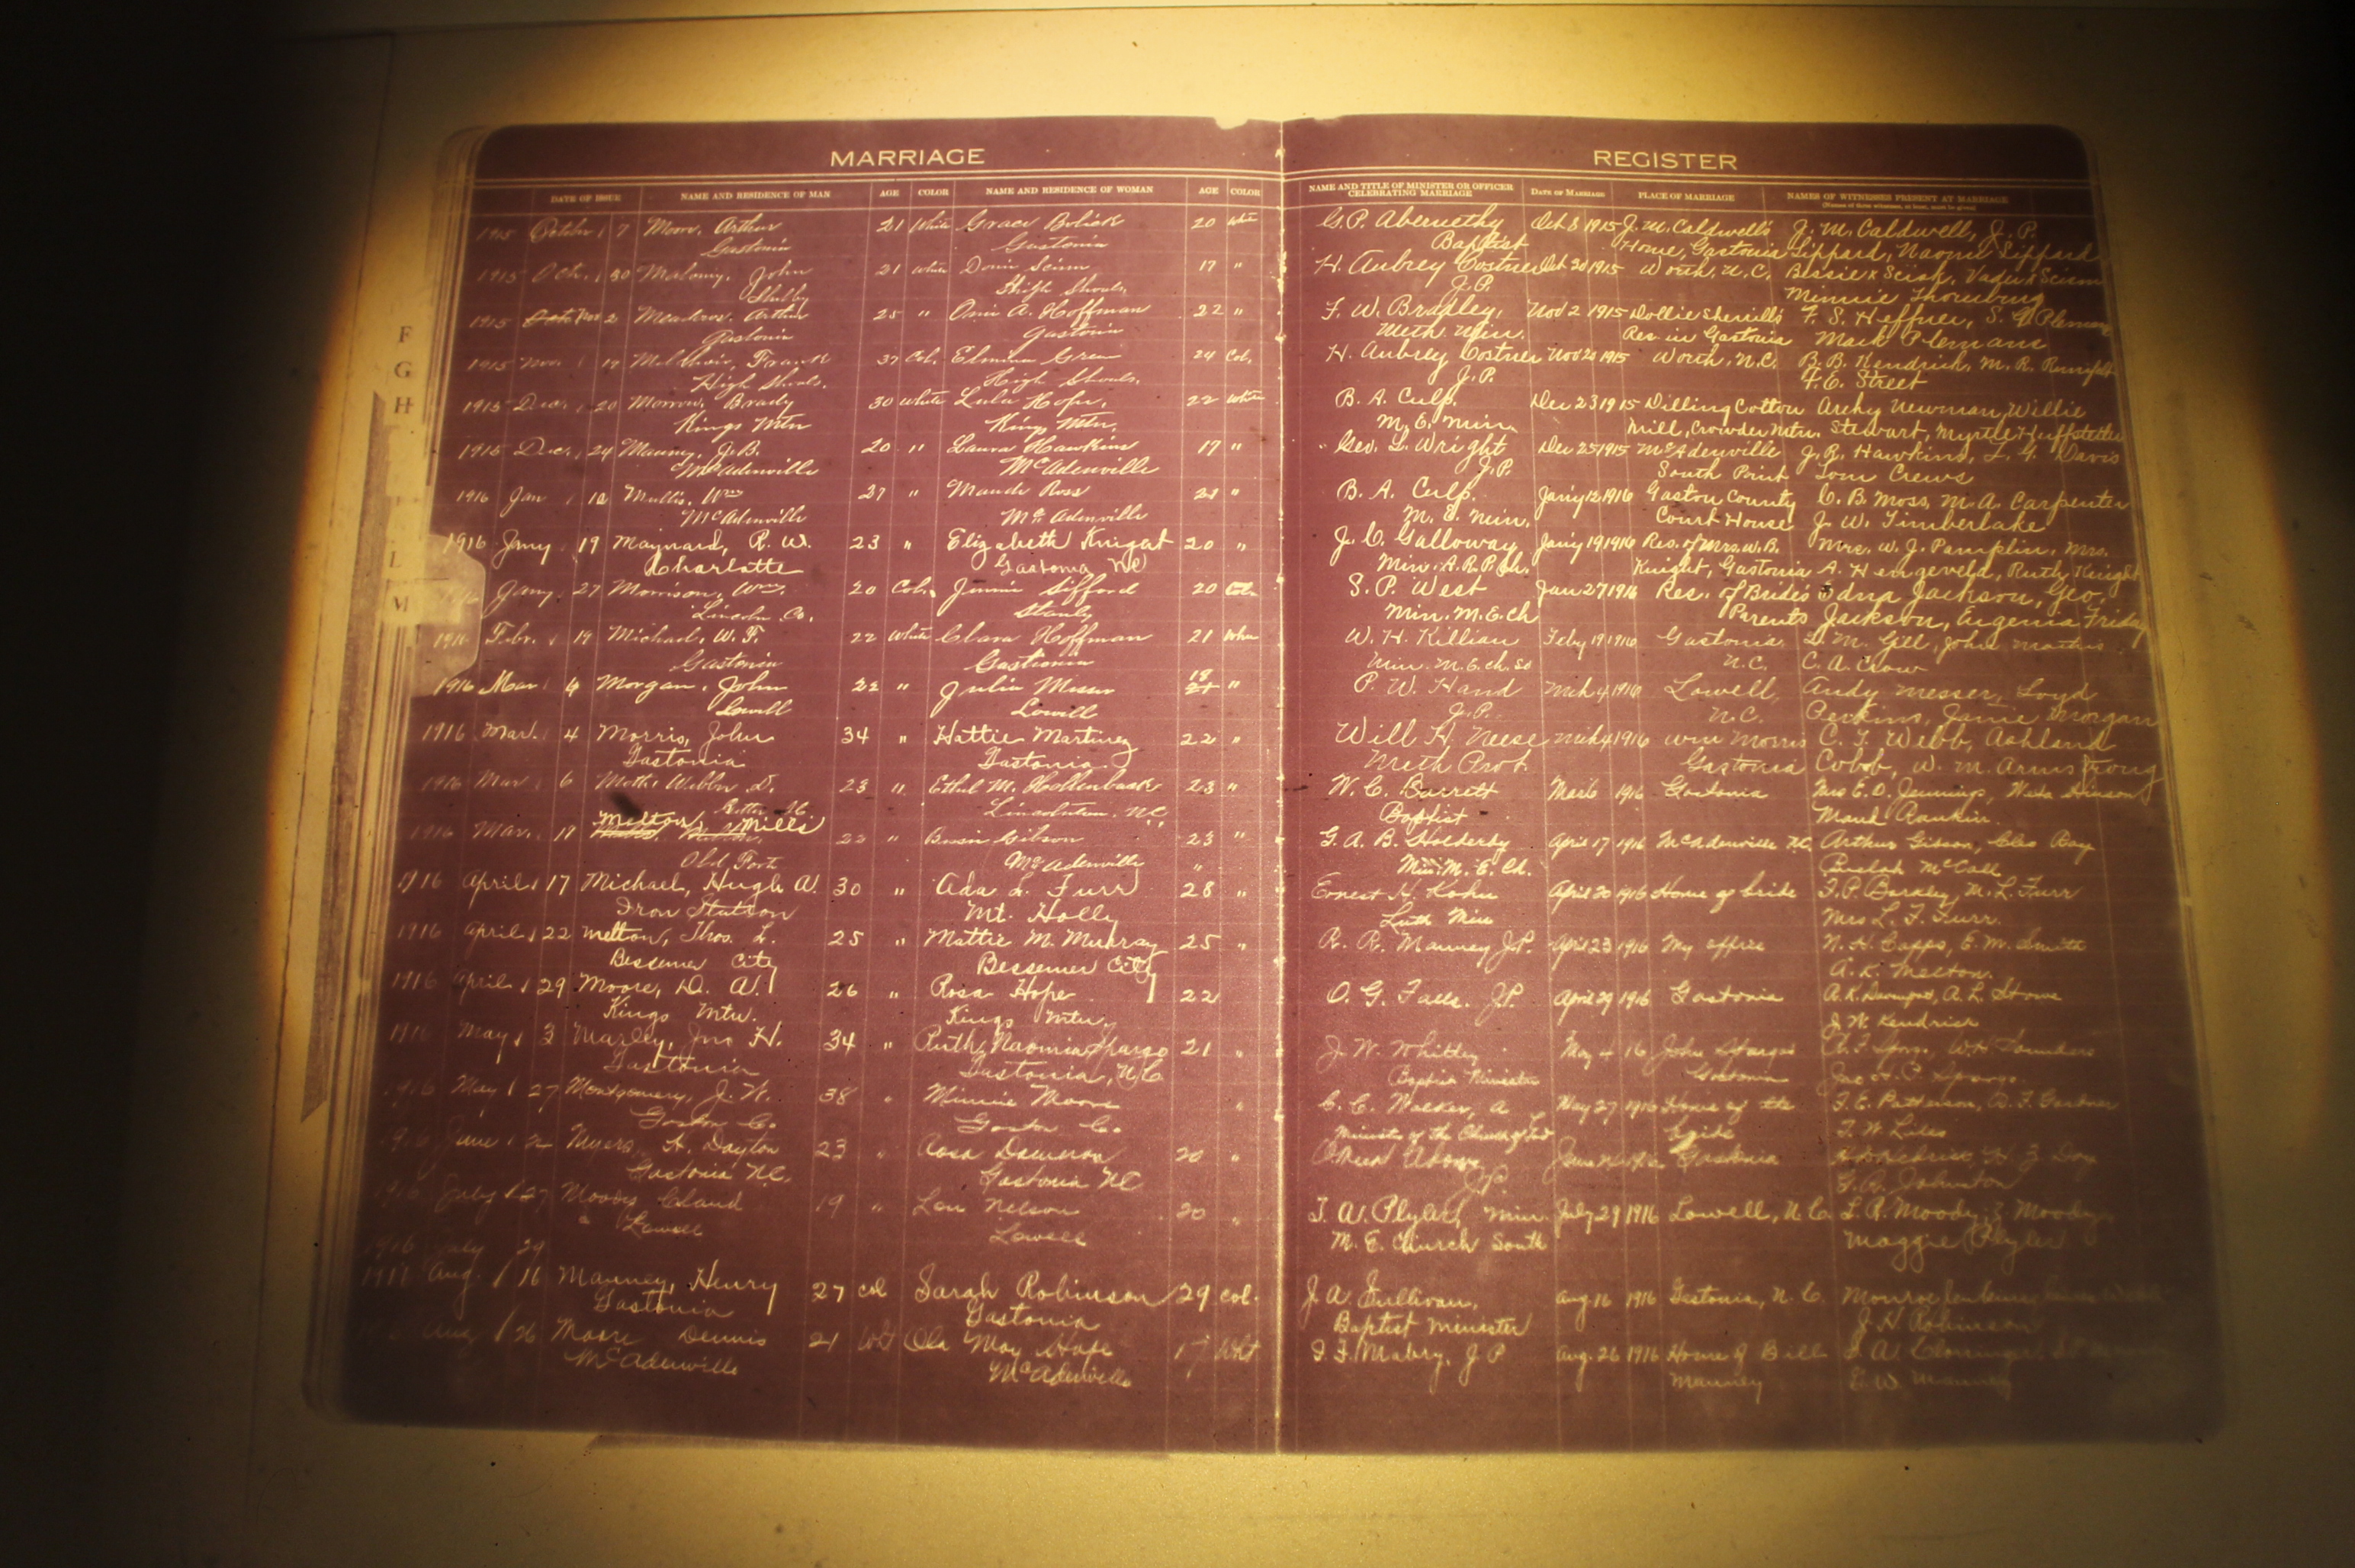 MARRIAGE
REGISTER
DATE OF ISSUE NAME AND RESIDENCE OF MAN AGE COLOR NAME AND RESIDENCE OF WOMAN AGE COLOR
NAME AND TITLE OF MINISTER OR OFFICER CELEBRATING MARRIAGE DATE OF MARRIAGE PLACE OF MARRIAGE NAMES OF WITNESSES PRESENT AT MARRIAGE
(Names of three witnesses, at least, must be given)
F
G
H
L
M
1915 October 7 Moore, Arthur 21 White Grace Bolick 20 White G. P. Abernethy Oct 8 1915 J. M. Caldwell's J. M. Caldwell, J. P.
Gastonia Gastonia Baptist Home, Gastonia Sippard, Naomi Sippard
1915 Oct. 30 John 21 White 17 " H. Aubrey Costner Oct 1915 Worth, N.C.
Shelby High Shoals, J.P. Minnie Thornburg
1915 Nov 2 Meadows, Arthur 25 " A. Hoffman 22 " F. W. Bradley, Nov 2 1915 Dollie Sherrill's F. S. Heffner, S.
Gastonia Gastonia Meth. Min. Res. in Gastonia Mack Plemans
1915 Nov. 19 Frank 37 Col. Elmina Green 24 Col. H. Aubrey Costner Nov 1915 Worth, N.C. B. B. Kendrick, M. R.
High Shoals. High Shoals. J.P. Street
1915 Dec. 20 Brady 30 White Lula Hope, 22 White B. A. Culp. Dec 23 1915 Dilling Cotton Archy Newman, Willie
Kings Mtn Kings Mtn. M. E. Min. Mill, Crowder Mtn. Stewart, Myrtle Huffstetler
1915 Dec. 24 Mauney, J. B. 20 " Laura Hawkins 17 " Geo. L. Wright Dec 25 1915 McAdenville J. R. Hawkins, L. G. Davis
McAdenville McAdenville J.P. South Point Tom Crews
1916 Jan 12 Mullis, Wm 27 " Maude Ross 21 " B. A. Culp. Jan'y 12 1916 Gaston County C. B. Moss, M. A. Carpenter
McAdenville McAdenville M. E. Min. Court House J. W. Timberlake
1916 Jany 19 Maynard, R. W. 23 " Elizabeth Knight 20 " J. C. Galloway Jan'y 19 1916 Res. of Mrs. W. B. Mrs. W. J. Pamplin, Mrs.
Charlotte Gastonia NC Min. A.R.P. Ch. Knight, Gastonia A. Hengeveld, Ruth Knight
Jany. 27 Morrison, Wm. 20 Col. Jimmie Sifford 20 Col. S. P. West Jan 27 1916 Res. of Brides Edna Jackson, Geo.
Lincoln Co. Stanly Min. M. E. Ch Parents Jackson, Eugenia Friday
Febr. 19 Michael, W. F. 22 White Clara Hoffman 21 White W. H. Killian Feby 19 1916 Gastonia M. Gill, John
Gastonia Gastonia Min. M. E. Ch. So N.C. C. A. Crow
1916 Mar. 4 Morgan, John 22 " Julia Misser 18 " P. W. Hand Mch 4 1916 Lowell, Andy Messer, Loyd
Lowell Lowell J.P. N.C. Perkins, Janie Morgan
1916 Mar. 4 Morris, John 34 " Hattie Martinez 22 " Will H. Neese Mch 4 1916 Wm Morris C. T. Webb, Ashland
Gastonia Gastonia. Meth Prot. Gastonia Cobb, W. M. Armstrong
1916 Mar 6 D. 23 " Ethel M. Hollenback 23 " W. C. Barrett Mar 6 1916 Gastonia Mrs E. D. Jennings,
Lincolnton, N.C. Baptist Maud Rankin.
1916 Mar. 17 Melton, Mills 22 " Gibson 23 " G. A. B. Holderby April 17 1916 McAdenville N.C. Arthur Gibson, Cleo Ray
Old Fort McAdenville Min. M. E. Ch. Beulah McCall
1916 April 17 Michael, Hugh A. 30 " Ada L. Furr 28 " Ernest H. Kohn April 20 1916 Home of bride F. P. Barkley, M. L. Furr
Iron Station Mt. Holly Luth Min Mrs L. F. Furr.
1916 April 22 Melton, Thos. L. 25 " Mattie M. Murray 25 " R. R. Mauney J.P. April 23 1916 My office N. H. Capps, E. M. Smith
Bessemer City Bessemer City A. K. Melton.
1916 April 29 Moore, D. A. 26 " Rosa Hope 22 O. G. Falls. J.P. April 29 1916 Gastonia A. L. Stowe
Kings Mtn. Kings Mtn. J. W. Kendrick
1916 May 3 Marley, Jno H. 34 " Ruth Naomia Spargo 21 " J. W. Whitley May 4 16 John Spargo's W. H. Saunders
Gastonia Gastonia, N.C. Baptist Minister Gastonia Jno H. P. Spargo.
1916 May 27 Montgomery, J. W. 38 " Minnie Moore " C. C. Walker, a May 27 1916 Home of the F. E. Patterson, B. F. Gardner
Gaston Co. Gaston Co. Minister of the Church of Bride T. W. Liles
June 2 Myers, H. Dayton 23 " Rosa Dameron 20 " Gastonia
Gastonia N.C. Gastonia N.C. J.P. Johnston
July 27 Moody, Cland 19 " Lou Nelson 20 " T. A. Plyler, Min. July 29 1916 Lowell, N.C. L. R. Moody, Z. Moody,
Lowell Lowell M. E. Church South Maggie Plyler
1916 July 29
Aug. 16 Mauney, Henry 27 col Sarah Robinson 29 col. J. A. Sullivan, Aug 16 1916 Gastonia, N.C. Monroe
Gastonia Gastonia Baptist Minister J. H. Robinson
Aug 26 Moore Dennis 21 Wht Ola May Hope 17 Wht I. F. Mabry, J P Aug. 26 1916 Home of Bill A. Cloninger
McAdenville McAdenville Mauney W. Mauney